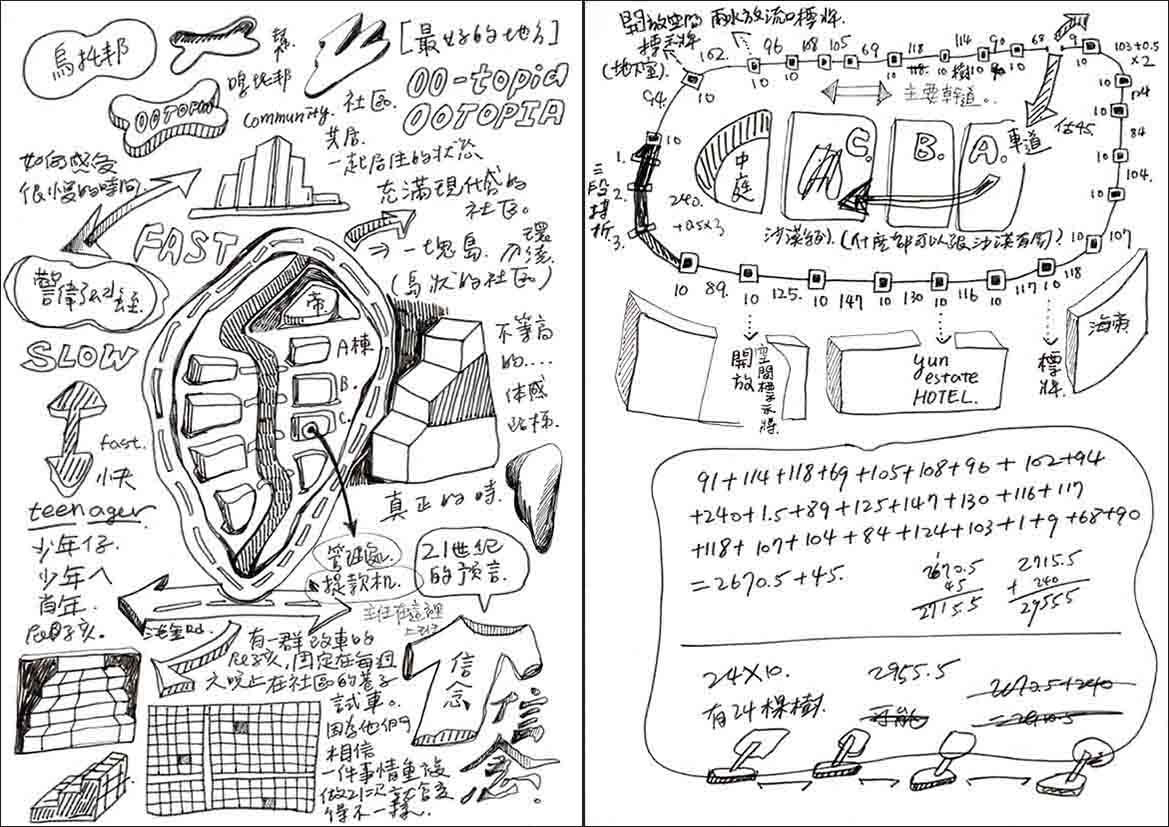 烏托邦
幫
嗚托邦
[最好的地方]
OO-topia
OOTOPIA
OOTOPIA
community. 社區.
共居.
一起居住的狀態
充滿現代感的
社區。
⇒ 一塊島. 環繞
(島狀的社區)
如何感覺
很慢的時間
FAST
SLOW
帝
A棟
B.
C.
不等高
的....
體感
階梯.
真正的時.
fast.
快
teenager
少年仔.
少年人
青年.
屁孩.
管理處.
提款机.
主任在這裡
21世紀
的預言.
信念
信念.
Rd.
有一群改車的
屁孩,固定在每週
六晚上在社區的巷子
試車。
因為他們
相信
一件事情重複
做21次就會變
得不一樣.
開放空間 雨水放流口標牌.
標示牌
(地下室).
102. 96 108 105 69 118 114 90 68 9 103+0.5
×2
94. 10 10 10 10 10 10 10 10 10 10
118. 樹
主要幹道。
124
84
104.
107
車道 估45
中庭
C.
B.
A.
1.
2.
3.
三段轉折
240.
+0.5×3
沙漠 (什麼都可以很沙漠有關)?
10 89. 10 125. 10 147 10 130 10 116 10 117 10 118
開放
空間標示牌
yun
estate
HOTEL.
標牌.
海帝
91+114+118+69+105+108+96+102+94
+240+1.5+89+125+147+130+116+117
+118+107+104+84+124+103+1+9+68+90
=2670.5+45.
2670.5
45
2715.5
2715.5
+ 240
2955.5
24×10.
有24棵樹.
2955.5
可能
2670.5+240
=2910.5